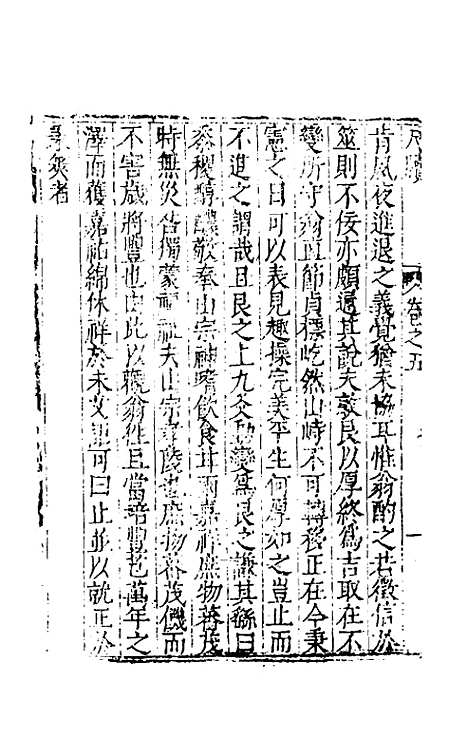 尺牘 卷之五 一
肯夙夜進退之義覺猶未協耳惟翁酌之若徵信於
筮則不佞亦頗過其說夫敦艮以厚終為吉取在不
變所守翁直節貞標屹然山峙不可轉移正在今秉
憲之日可以表見趣操完美平生何厚如之豈止而
不進之謂哉且艮之上九爻動變為艮之謙其繇曰
黍稷醇醲敬奉山宗神嗜飲食甘雨嘉祥庶物蕃茂
時無災咎獨蒙福祉夫山宗 也庶物蕃茂 而
不害歲將豐也由此以觀翁徃且當 萬年之
澤而獲嘉祐綿休祥於未艾 可曰止並以就正於
者